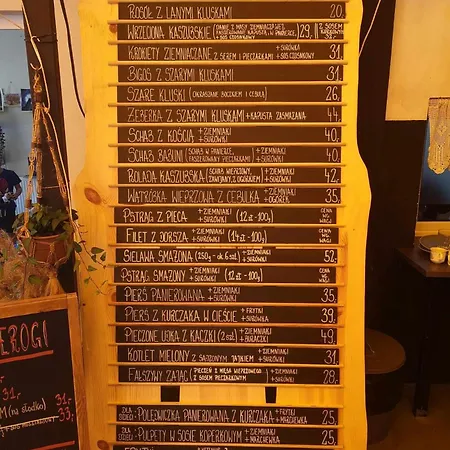 ROSÓŁ Z LANYMI KLUSKAMI 20,
WRZECIONA KASZUBSKIE (DANIE Z MASY ZIEMNIACZANEJ, FASZEROWANE KAPUSTĄ, W PANIERCE, + SOS CZOSNKOWY) 29, Z SOSEM KURKOWYM
KROKIETY ZIEMNIACZANE Z SEREM I PIECZARKAMI + SURÓWKA + SOS CZOSNKOWY 31,
BIGOS Z SZARYMI KLUSKAMI 31,
SZARE KLUSKI (OKRASZANE BOCZKIEM I CEBULĄ) 26,
ŻEBERKA Z SZARYMI KLUSKAMI + KAPUSTA ZASMAŻANA 44,
SCHAB Z KOŚCIĄ + ZIEMNIAKI + SURÓWKI 40,
SCHAB BABUNI (SCHAB W PANIERCE, FASZEROWANY PIECZARKAMI) + ZIEMNIAKI + SURÓWKI 40,
ROLADA KASZUBSKA (SCHAB WIEPRZOWY, ZAWIJANY, Z OGÓRKIEM) + ZIEMNIAKI + SURÓWKI 42,
WĄTRÓBKA WIEPRZOWA Z CEBULKĄ + ZIEMNIAKI + OGÓREK 35,
PSTRĄG Z PIECA + ZIEMNIAKI + SURÓWKI (12 zł - 100g) CENA WG. WAGI
FILET Z DORSZA + ZIEMNIAKI + SURÓWKI (14 zł - 100g) CENA WG. WAGI
SIELAWA SMAŻONA (250g - ok 6 szt) + ZIEMNIAKI + SURÓWKI 52,
PSTRĄG SMAŻONY + ZIEMNIAKI + SURÓWKI (12 zł - 100g) CENA WG. WAGI
PIERŚ PANIEROWANA + ZIEMNIAKI + SURÓWKI 35,
PIERŚ Z KURCZAKA W CIEŚCIE + FRYTKI + SURÓWKA 39,
PIECZONE UDKA Z KACZKI (2 szt) + ZIEMNIAKI + BURACZKI 49,
KOTLET MIELONY Z SADZONYM JAJKIEM + ZIEMNIAKI + SURÓWKI 31,
FAŁSZYWY ZAJĄC (PIECZEŃ Z MIĘSA WIEPRZOWEGO Z SOSEM PIECZARKOWYM) + ZIEMNIAKI + SURÓWKI 28,
DLA DZIECI: POLĘDWICZKA PANIEROWANA Z KURCZAKA + FRYTKI + MARCHEWKA 25,
DLA DZIECI: PULPETY W SOSIE KOPERKOWYM + ZIEMNIAKI + MARCHEWKA 25,
EROGI
31,
31,
(na słodko) 31,
33,